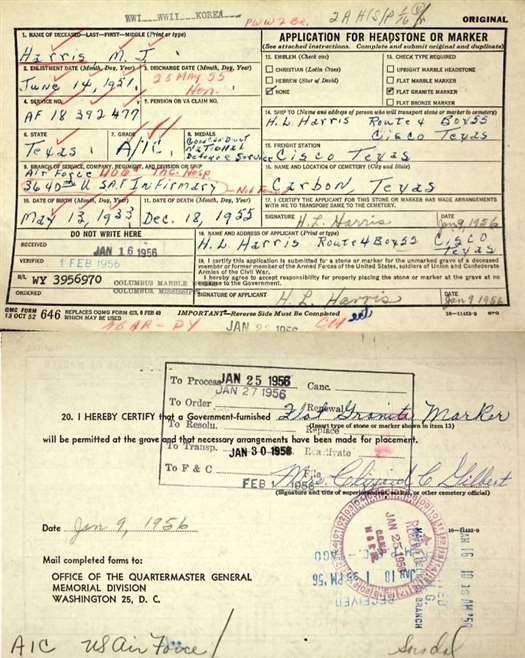 WWI WWII KOREA
PWW2Br.
ORIGINAL
1. NAME OF DECEASED—LAST—FIRST—MIDDLE (Print or type)
Harris, M. J.
2. ENLISTMENT DATE (Month, Day, Year)
June 14, 1951
3. DISCHARGE DATE (Month, Day, Year)
25 May 55
Hon.
4. SERVICE NO.
AF 18 392 477
5. PENSION OR VA CLAIM NO.
6. STATE
Texas
7. GRADE
A/1C.
8. MEDALS
Good Conduct
National
Defense Service
9. BRANCH OF SERVICE, COMPANY, REGIMENT, AND DIVISION OR SHIP
Air Force
3640th USAF Infirmary
10. DATE OF BIRTH (Month, Day, Year)
May 13, 1933
11. DATE OF DEATH (Month, Day, Year)
Dec. 18, 1955
APPLICATION FOR HEADSTONE OR MARKER
(See attached instructions. Complete and submit original and duplicate)
12. EMBLEM (Check one)
CHRISTIAN (Latin Cross)
HEBREW (Star of David)
NONE
13. CHECK TYPE REQUIRED
UPRIGHT MARBLE HEADSTONE
FLAT MARBLE MARKER
FLAT GRANITE MARKER
FLAT BRONZE MARKER
14. SHIP TO (Name and address of person who will transport stone or marker to cemetery)
H. L. Harris Route 4 Box 55
Cisco Texas
15. FREIGHT STATION
Cisco Texas
16. NAME AND LOCATION OF CEMETERY (City and State)
Carbon, Texas
17. I CERTIFY THE APPLICANT FOR THIS STONE OR MARKER HAS MADE ARRANGEMENTS WITH ME TO TRANSPORT SAME TO THE CEMETERY.
SIGNATURE H. L. Harris
DATE Jan 9, 1956
DO NOT WRITE HERE
RECEIVED JAN 16 1956
VERIFIED 1 FEB 1956
B/L WY 3956970
ORDERED
COLUMBUS MARBLE
COLUMBUS MISSISSIPPI
18. NAME AND ADDRESS OF APPLICANT (Print or type)
H. L. Harris Route 4 Box 55 Cisco Texas
19. I certify this application is submitted for a stone or marker for the unmarked grave of a deceased member or former member of the Armed Forces of the United States, soldiers of Union and Confederate Armies of the Civil War.
I hereby agree to accept responsibility for properly placing the stone or marker at the grave at no expense to the Government.
SIGNATURE OF APPLICANT H. L. Harris
DATE Jan 9 1956
QMC FORM 13 OCT 52 646
REPLACES QMC FORM 623, 8 FEB 49 WHICH MAY BE USED
IMPORTANT—Reverse Side Must be Completed
16—11453-9 GPO
To Process JAN 25 1956 Canc.
JAN 27 1956
To Order Renewal
To Resolu. Replace
To Transp. JAN 30 1956 Reactivate
To F & C File
FEB 1 1956
20. I HEREBY CERTIFY that a Government-furnished Flat Granite Marker
(Insert type of stone or marker shown in item 13)
will be permitted at the grave and that necessary arrangements have been made for placement.
Mrs. Clizard C. Gilbert
(Signature and title of superintendent, sexton, or other cemetery official)
Date Jan 9, 1956
16—11453-9
Mail completed forms to:
OFFICE OF THE QUARTERMASTER GENERAL
MEMORIAL DIVISION
WASHINGTON 25, D. C.
A1C US Air Force